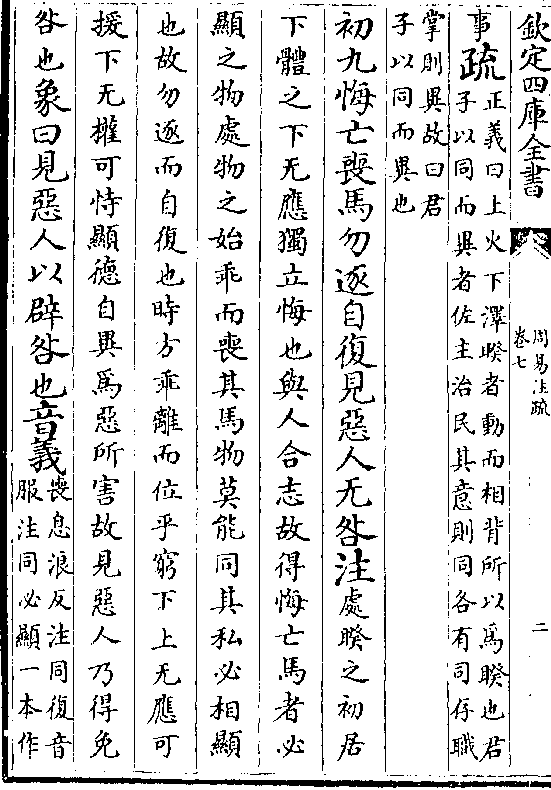 欽定四庫全書
周易注疏
卷七
二
事疏正義曰上火下澤睽者動而相背所以爲睽也君
子以同而異者佐主治民其意則同各有司存職
掌則異故曰君
子以同而異也
初九悔亡喪馬勿逐自復見惡人无咎注處睽之初居
下體之下无應獨立悔也與人合志故得悔亡馬者必
顯之物處物之始乖而喪其馬物莫能同其私必相顯
也故勿逐而自復也時方乖離而位乎窮下上无應可
援下无權可恃顯德自異爲惡所害故見惡人乃得免
咎也象曰見惡人以辟咎也音義喪息浪反注同復音
服注同必顯一本作